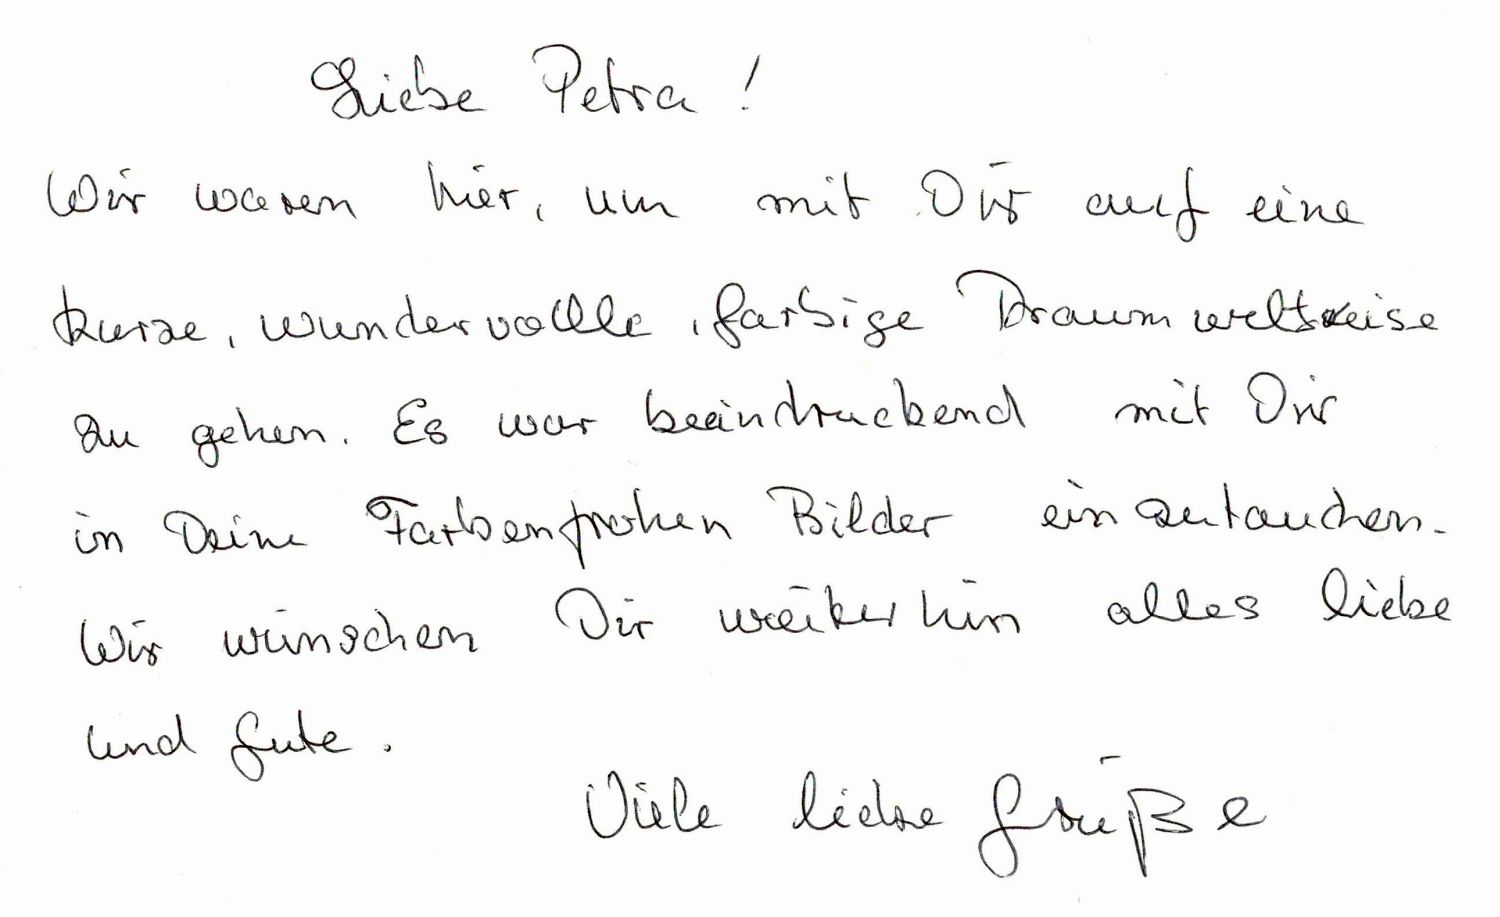 Liebe Petra!
Wir waren hier, um mit Dir auf eine
kurze, wundervolle, farbige Traumweltreise
zu gehen. Es war beeindruckend mit Dir
in Deine Farbenfrohen Bilder einzutauchen.
Wir wünschen Dir weiterhin alles liebe
und Gute.
Viele liebe Grüße